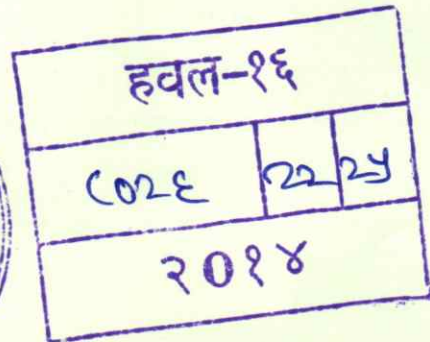 हवल-१६
८०२६ २२ २५
२०१४